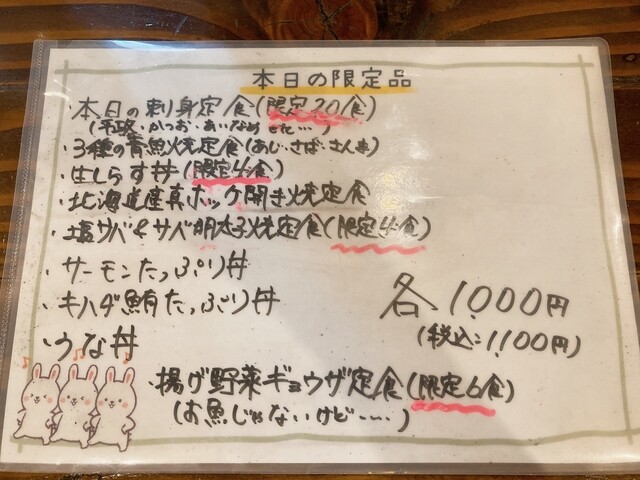 本日の限定品
・本日の刺身定食(限定20食)
(平政・かつお・あいなめ・・・・)
・3種の青魚焼定食(あじ・さば・さんま)
・生しらす丼(限定4食)
・北海道産真ホッケ開き焼定食
・塩サバ&サバ明太子焼定食(限定4食)
・サーモンたっぷり丼
・キハダ鮪たっぷり丼
各1,000円
(税込:1,100円)
・うな丼
・揚げ野菜ギョウザ定食(限定6食)
(お魚じゃないけど・・・・)